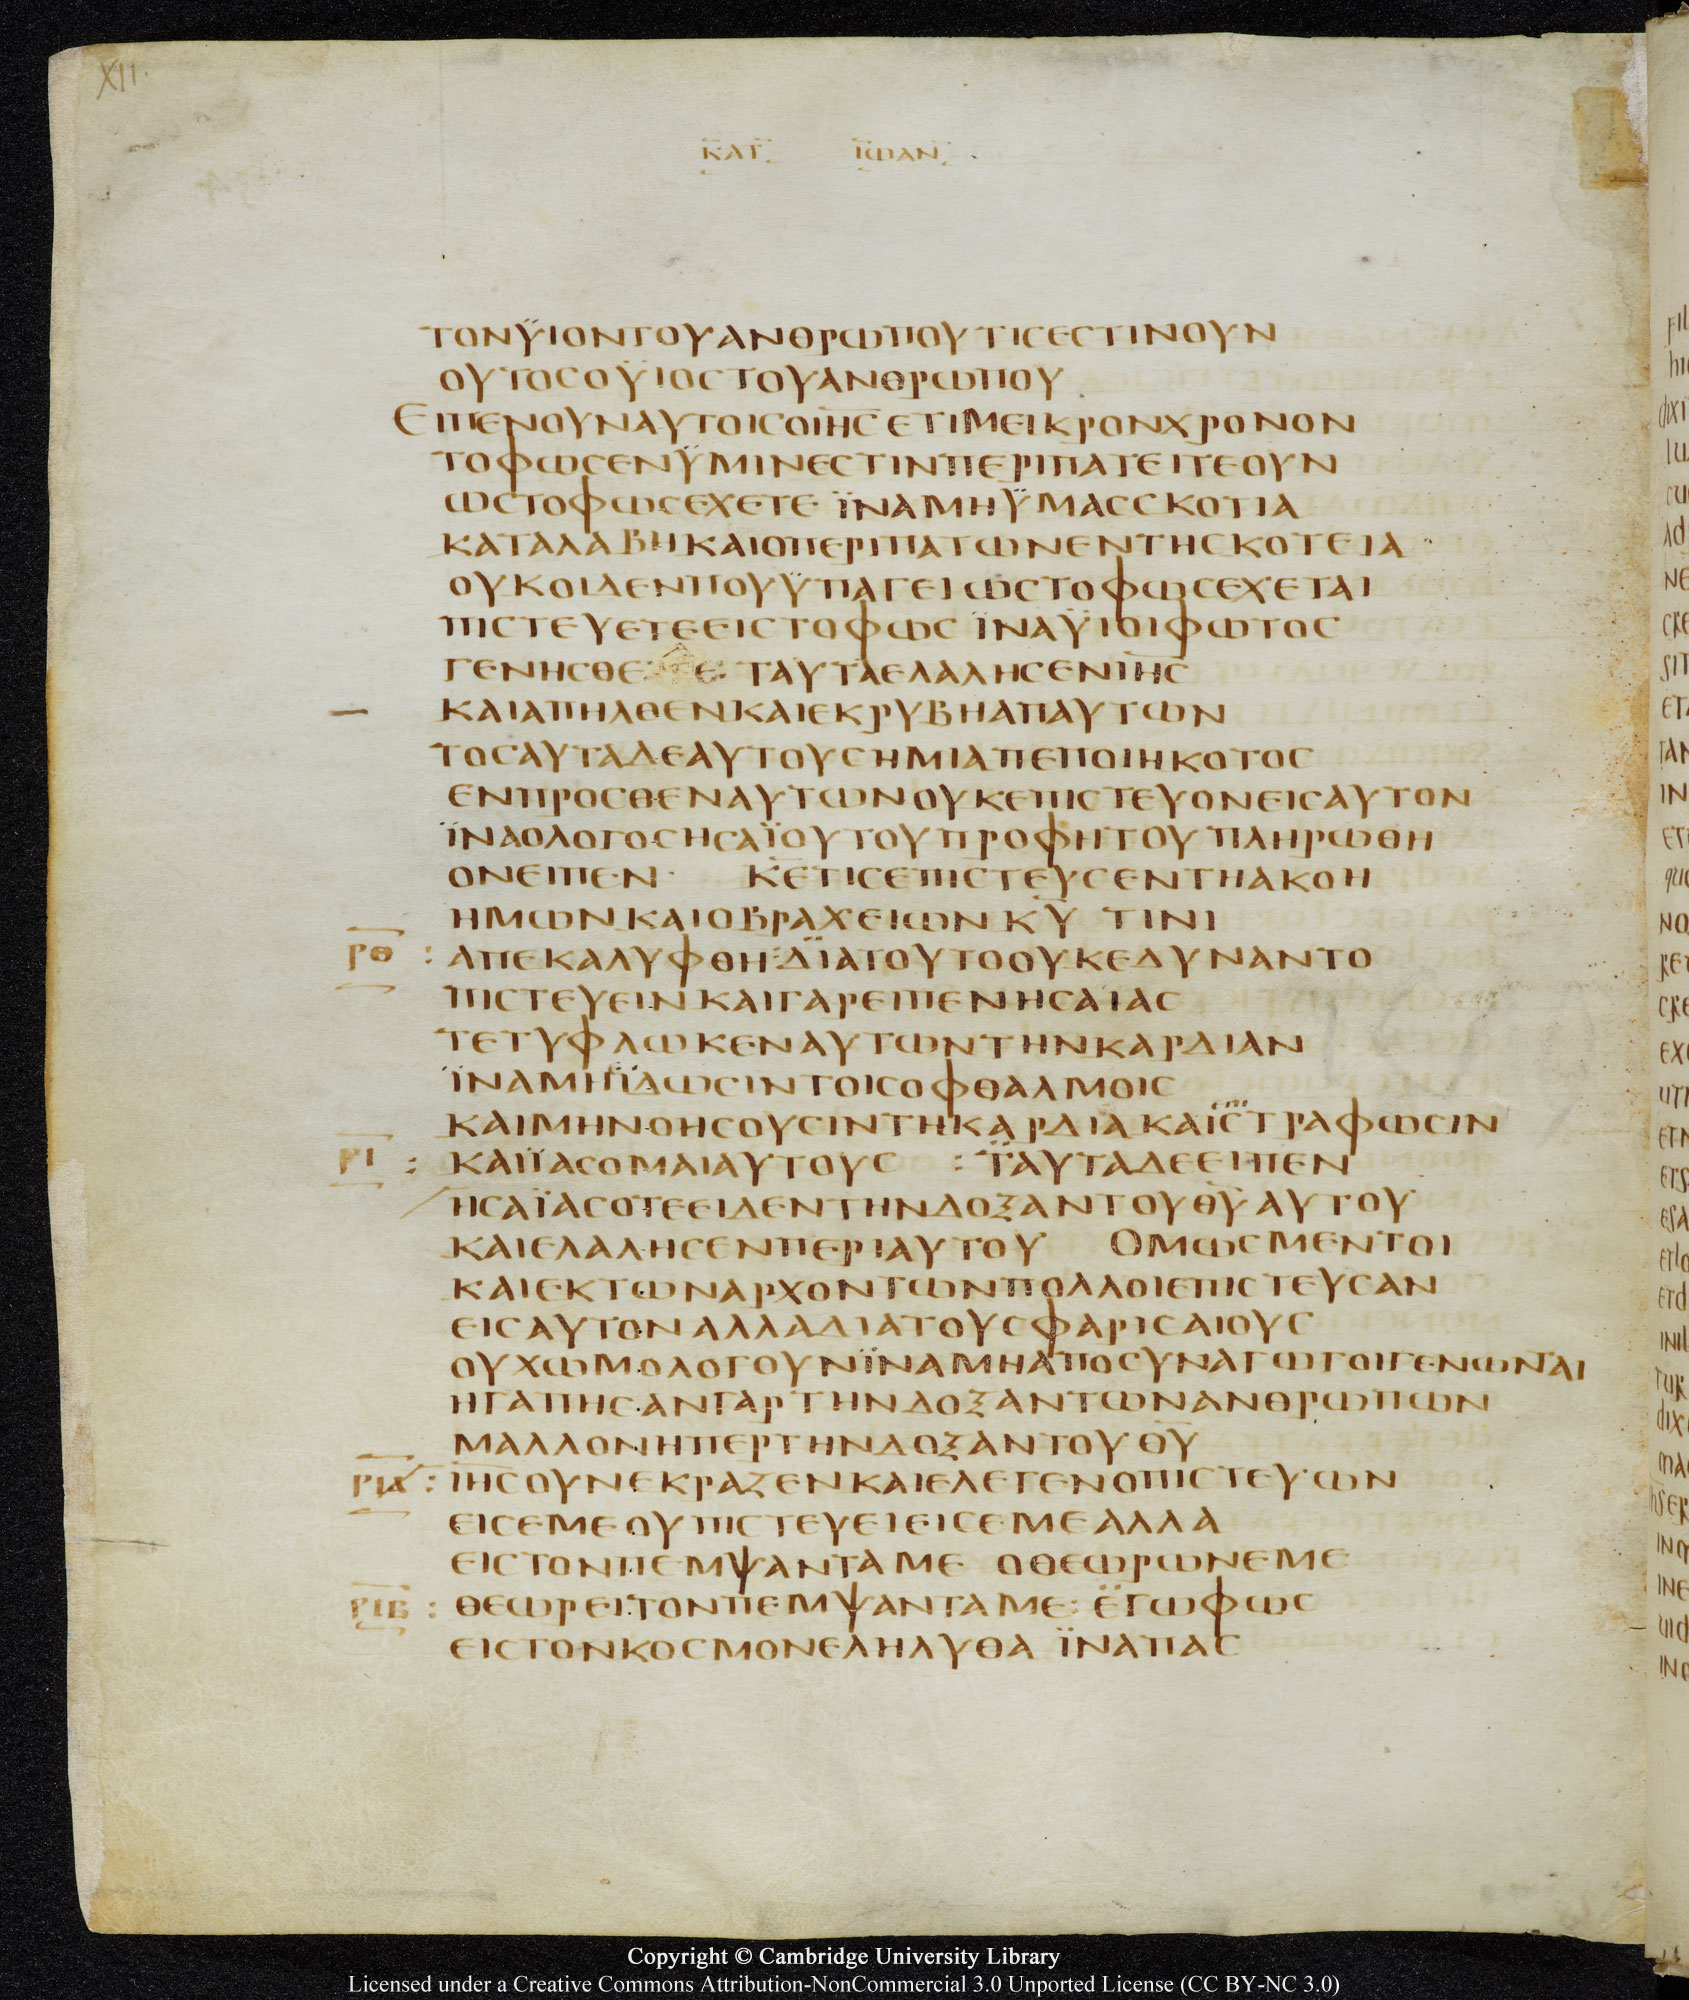 XII.
ΚΑΤ ΙΩΑΝ
ΤΟΝΫΙΟΝΤΟΥΑΝΘΡΩΠΟΥΤΙϹΕϹΤΙΝΟΥΝ
ΟΥΤΟϹΟΫΙΟϹΤΟΥΑΝΘΡΩΠΟΥ
ΕΙΠΕΝΟΥΝΑΥΤΟΙϹΟΙΗϹ ΕΤΙΜΕΙΚΡΟΝΧΡΟΝΟΝ
ΤΟΦΩϹΕΝΫΜΙΝΕϹΤΙΝΠΕΡΙΠΑΤΕΙΤΕΟΥΝ
ΩϹΤΟΦΩϹΕΧΕΤΕ ΪΝΑΜΗΫΜΑϹϹΚΟΤΙΑ
ΚΑΤΑΛΑΒΗΚΑΙΟΠΕΡΙΠΑΤΩΝΕΝΤΗϹΚΟΤΕΙΑ
ΟΥΚΟΙΔΕΝΠΟΥΫΠΑΓΕΙΩϹΤΟΦΩϹΕΧΕΤΑΙ
ΠΙϹΤΕΥΕΤΕΕΙϹΤΟΦΩϹ ΪΝΑΫΙΟΙΦΩΤΟϹ
ΓΕΝΗϹΘΕ: ΤΑΥΤΑΕΛΑΛΗϹΕΝΙΗϹ
ΚΑΙΑΠΗΛΘΕΝΚΑΙΕΚΡΥΒΗΑΠΑΥΤΩΝ
ΤΟϹΑΥΤΑΔΕΑΥΤΟΥϹΗΜΙΑΠΕΠΟΙΗΚΟΤΟϹ
ΕΝΠΡΟϹΘΕΝΑΥΤΩΝΟΥΚΕΠΙϹΤΕΥΟΝΕΙϹΑΥΤΟΝ
ΪΝΑΟΛΟΓΟϹΗϹΑΪΟΥΤΟΥΠΡΟΦΗΤΟΥ ΠΛΗΡΩΘΗ
ΟΝΕΙΠΕΝ· ΚΕΤΙϹΕΠΙϹΤΕΥϹΕΝΤΗΑΚΟΗ
ΗΜΩΝΚΑΙΟΒΡΑΧΕΙΩΝ ΚΥ ΤΙΝΙ
ΡΘ : ΑΠΕΚΑΛΥΦΘΗ:ΔΪΑΤΟΥΤΟΟΥΚΕΔΥΝΑΝΤΟ
ΠΙϹΤΕΥΕΙΝΚΑΙΓΑΡΕΙΠΕΝΗϹΑΙΑϹ
ΤΕΤΥΦΛΩΚΕΝΑΥΤΩΝΤΗΝΚΑΡΔΙΑΝ
ΪΝΑΜΗΪΔΩϹΙΝΤΟΙϹΟΦΘΑΛΜΟΙϹ
ΚΑΙΜΗΝΟΗϹΟΥϹΙΝΤΗΚΑΡΔΙΑΚΑΙϹΤΡΑΦΩϹΙΝ
ΡΙ : ΚΑΙΪΑϹΟΜΑΙΑΥΤΟΥϹ : ΤΑΥΤΑΔΕΕΙΠΕΝ
ΗϹΑΪΑϹΟΤΕΕΙΔΕΝΤΗΝΔΟΞΑΝΤΟΥΘΥΑΥΤΟΥ
ΚΑΙΕΛΑΛΗϹΕΝΠΕΡΙΑΥΤΟΥ ΟΜΩϹΜΕΝΤΟΙ
ΚΑΙΕΚΤΩΝΑΡΧΟΝΤΩΝΠΟΛΛΟΙΕΠΙϹΤΕΥϹΑΝ
ΕΙϹΑΥΤΟΝΑΛΛΑΔΙΑΤΟΥϹΦΑΡΙϹΑΙΟΥϹ
ΟΥΧΩΜΟΛΟΓΟΥΝΪΝΑΜΗΑΠΟϹΥΝΑΓΩΓΟΙΓΕΝΩΝΤΑΙ
ΗΓΑΠΗϹΑΝΓΑΡΤΗΝΔΟΞΑΝΤΩΝΑΝΘΡΩΠΩΝ
ΜΑΛΛΟΝΗΠΕΡΤΗΝΔΟΞΑΝΤΟΥΘΥ
ΡΙΑ : ΙΗϹΟΥΝΕΚΡΑΖΕΝΚΑΙΕΛΕΓΕΝΟΠΙϹΤΕΥΩΝ
ΕΙϹΕΜΕΟΥΠΙϹΤΕΥΕΙΕΙϹΕΜΕΑΛΛΑ
ΕΙϹΤΟΝΠΕΜΨΑΝΤΑΜΕ ΟΘΕΩΡΩΝΕΜΕ
ΡΙΒ : ΘΕΩΡΕΙΤΟΝΠΕΜΨΑΝΤΑΜΕ: ΕΓΩΦΩϹ
ΕΙϹΤΟΝΚΟϹΜΟΝΕΛΗΛΥΘΑ ΪΝΑΠΑϹ
Copyright © Cambridge University Library
Licensed under a Creative Commons Attribution-NonCommercial 3.0 Unported License (CC BY-NC 3.0)